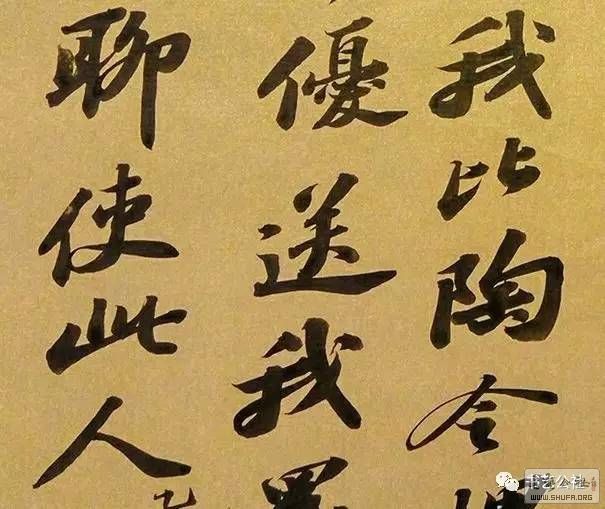 我比陶令
優送我
聊使此人
书艺公社
WWW.SHUFA.ORG